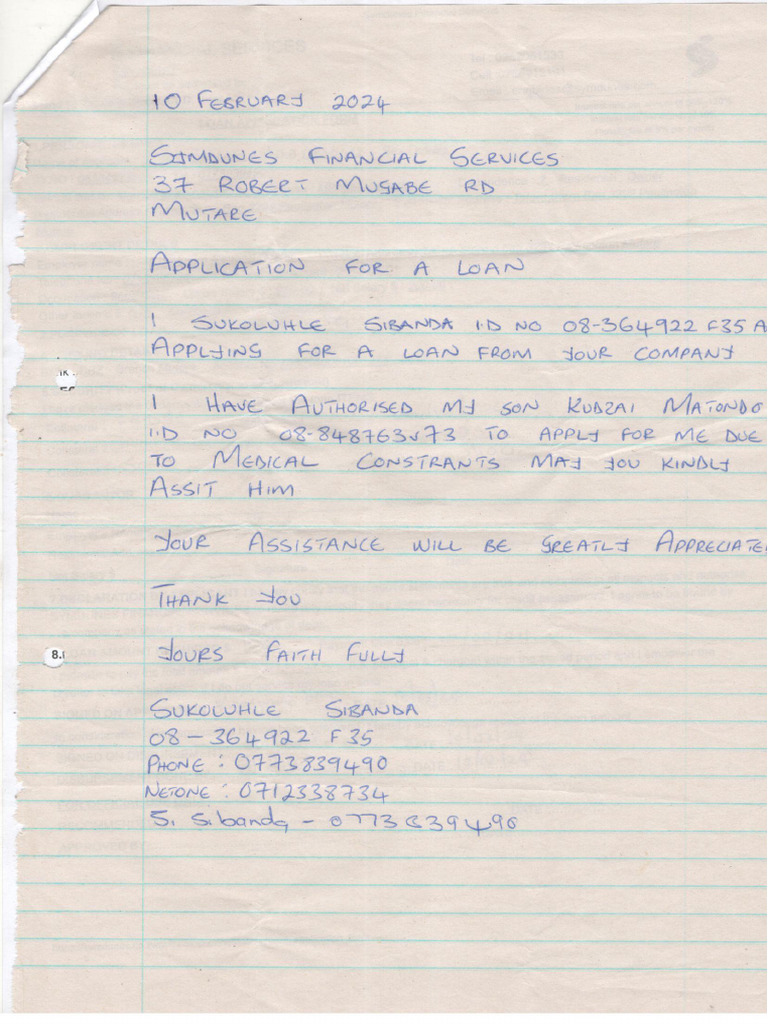 10 FEBRUARY 2024
SIMDUNES FINANCIAL SERVICES
37 ROBERT MUGABE RD
MUTARE
APPLICATION FOR A LOAN
I SUKOLUHLE SIBANDA I.D NO 08-364922 F35 A
APPLYING FOR A LOAN FROM YOUR COMPANY
I HAVE AUTHORISED MY SON KUDZAI MATONDO
I.D NO 08-848763V73 TO APPLY FOR ME DUE
TO MEDICAL CONSTRANTS MAY YOU KINDLY
ASSIT HIM
YOUR ASSISTANCE WILL BE GREATLY APPRECIATE
THANK YOU
YOURS FAITH FULLY
8.
SUKOLUHLE SIBANDA
08-364922 F35
PHONE : 0773839490
NETONE : 0712338734
S. Sibanda - 0773839490